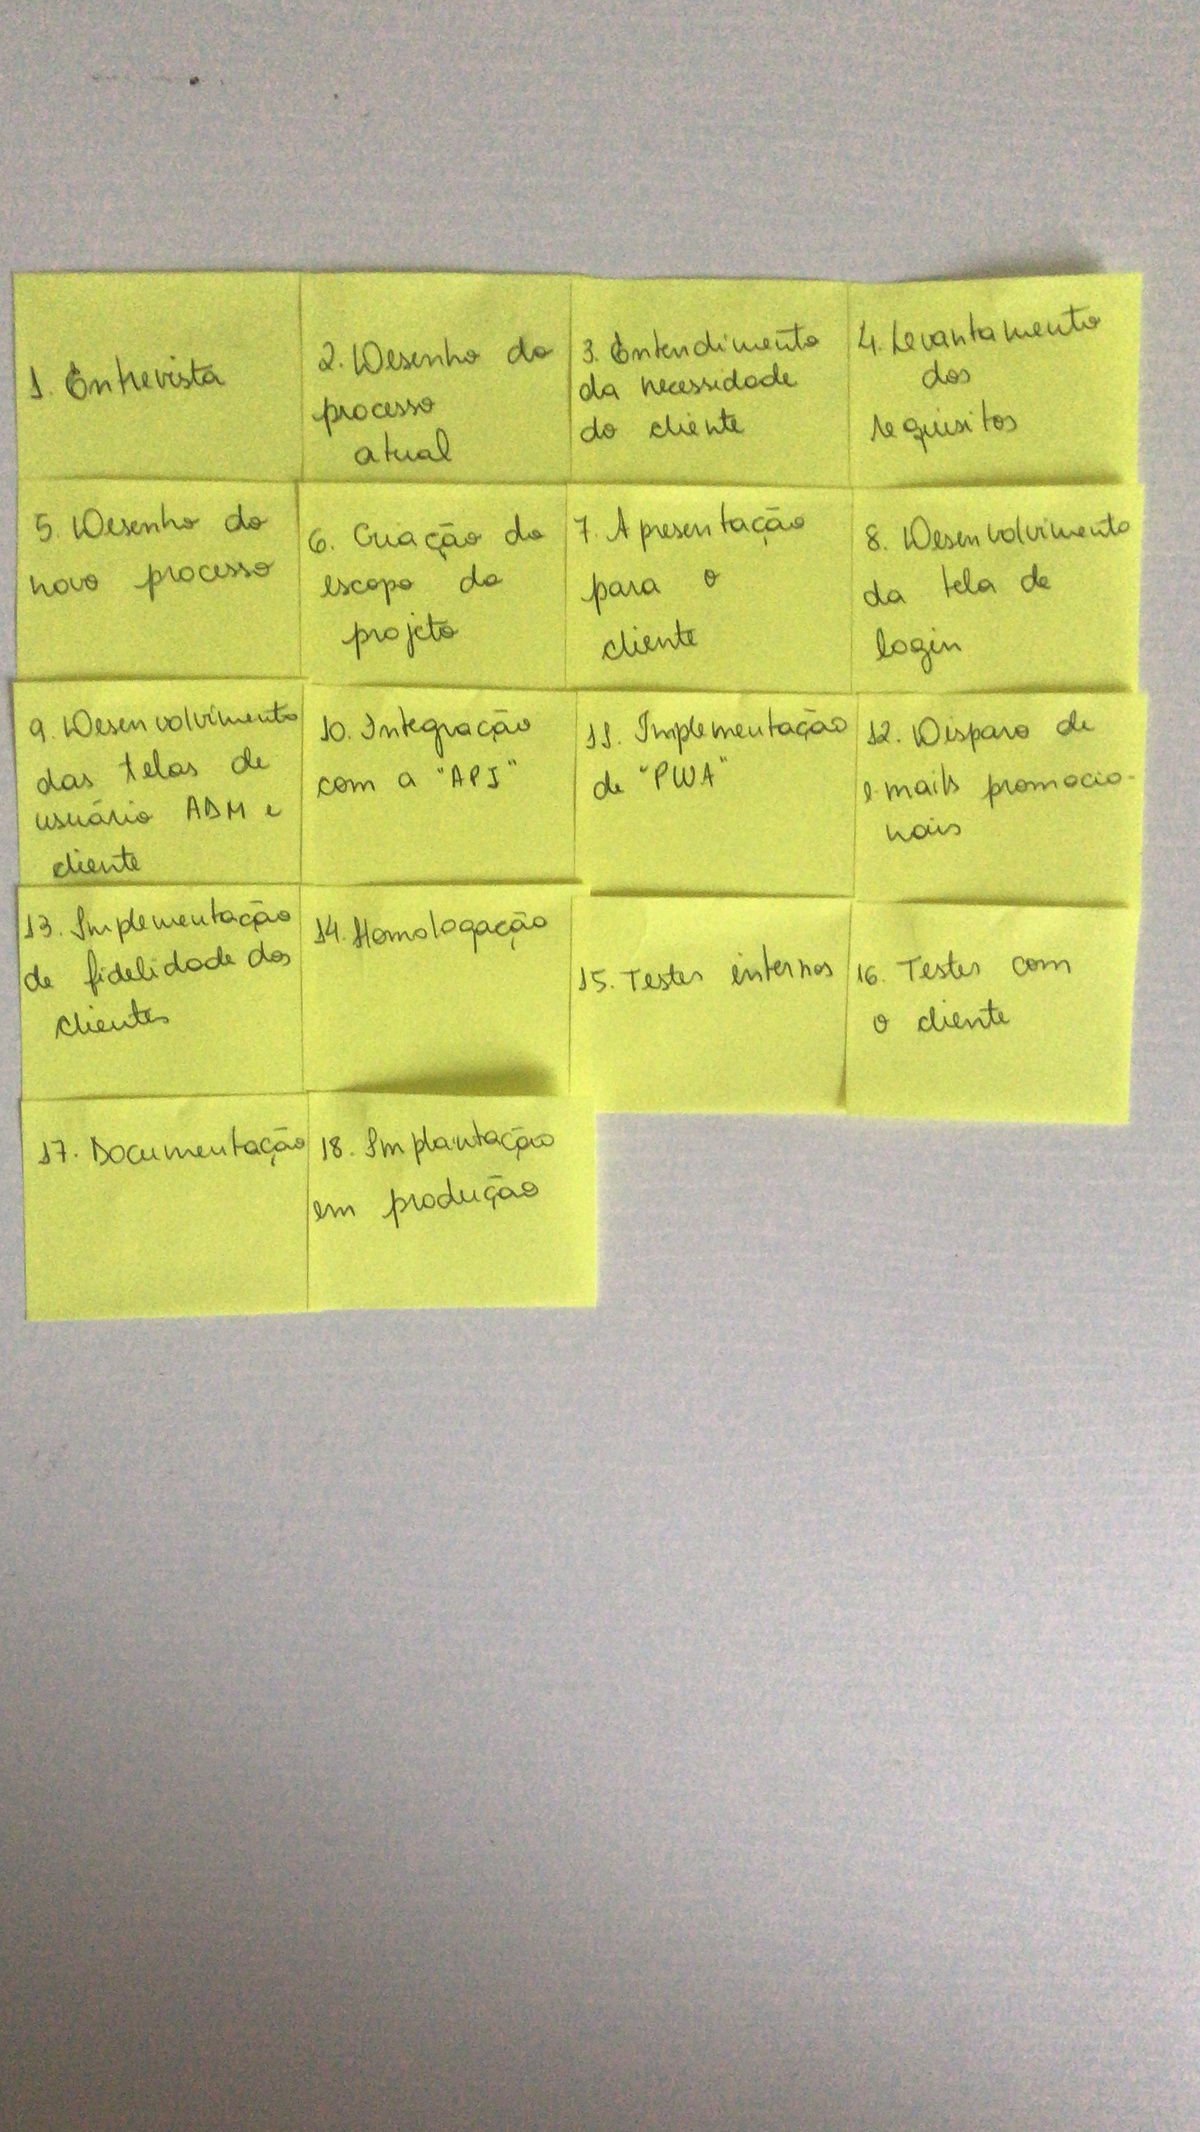 1. Entrevista
2. Desenho do
processo
atual
3. Entendimento
da necessidade
do cliente
4. Levantamento
dos
requisitos
5. Desenho do
novo processo
6. Criação do
escopo do
projeto
7. Apresentação
para o
cliente
8. Desenvolvimento
da tela de
login
9. Desenvolvimento
das telas de
usuário ADM e
cliente
10. Integração
com a "API"
11. Implementação
de "PWA"
12. Disparo de
e-mails promocio-
nais
13. Implementação
de fidelidade dos
clientes
14. Homologação
15. Testes internos
16. Testes com
o cliente
17. Documentação
18. Implantação
em produção